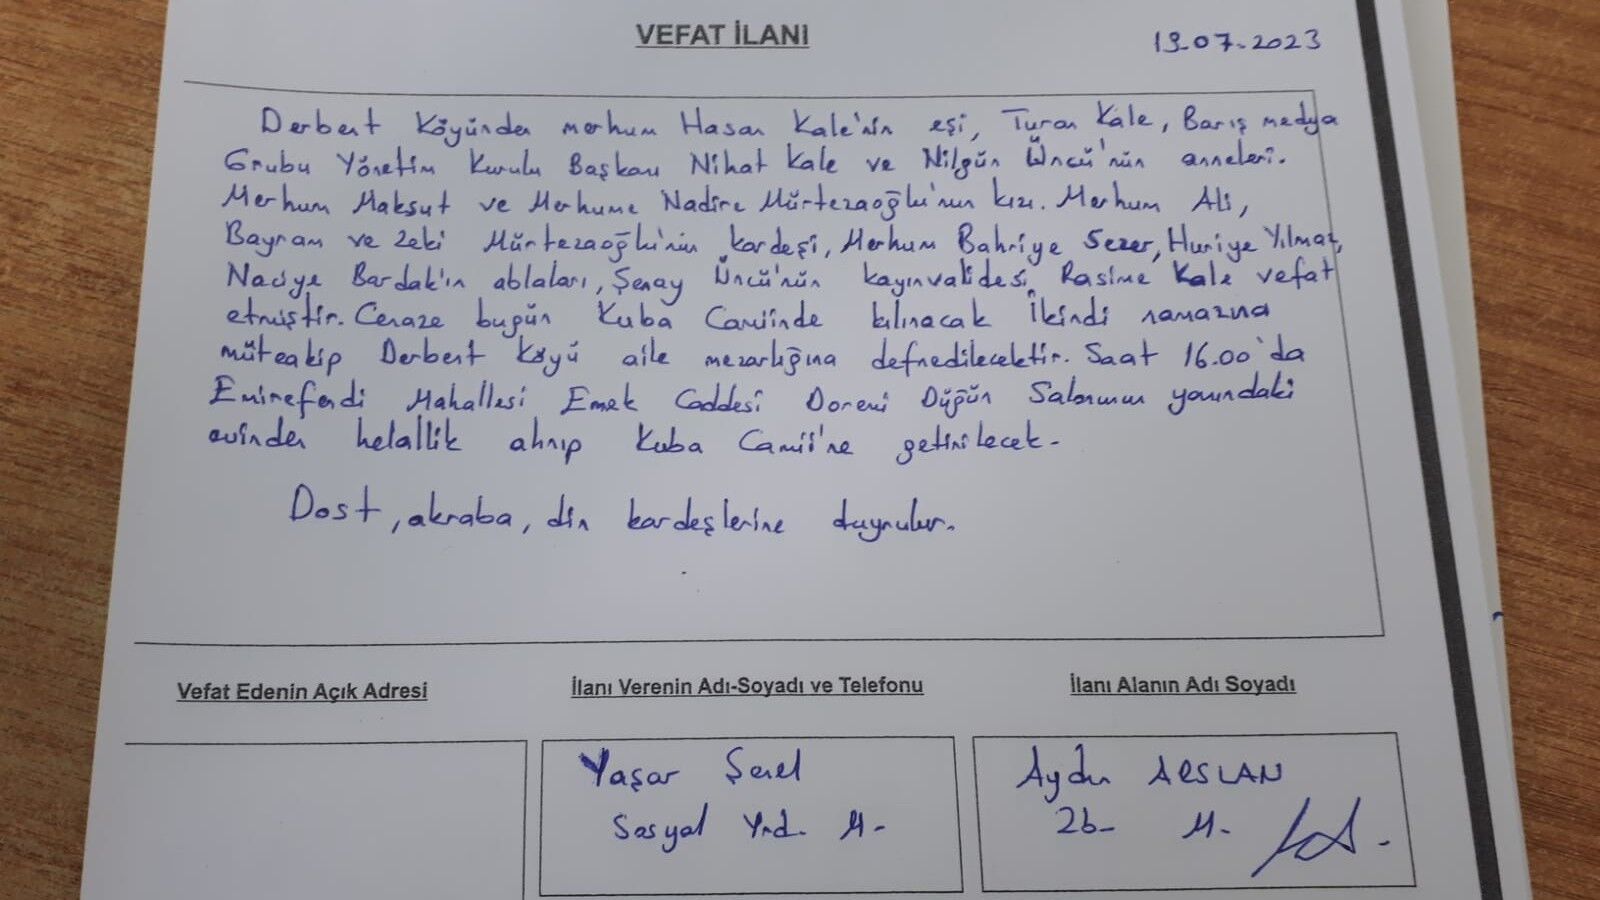 VEFAT İLANI
19.07.2023
Derbent Köyünden merhum Hasan Kale'nin eşi, Turan Kale, Barış medya
Grubu Yönetim Kurulu Başkanı Nihat Kale ve Nilgün Üncü'nün anneleri.
Merhum Maksut ve Merhume Nadire Mürtezaoğlu'nun kızı. Merhum Ali,
Bayram ve Zeki Mürtezaoğlu'nun kardeşi, Merhum Bahriye Sezer, Huriye Yılmaz,
Naciye Bardak'ın ablaları, Şenay Üncü'nün kayınvalidesi Rasime Kale vefat
etmiştir. Cenaze bugün Kuba Camiinde kılınacak İkindi namazına
müteakip Derbent Köyü aile mezarlığına defnedilecektir. Saat 16.00'da
Emirefendi Mahallesi Emek Caddesi Doremi Düğün Salonunun yanındaki
evinden helallik alınıp Kuba Camii'ne getirilecek.
Dost, akraba, din kardeşlerine duyrulur.
Vefat Edenin Açık Adresi
İlanı Verenin Adı-Soyadı ve Telefonu
İlanı Alanın Adı Soyadı
Yaşar Şenel
Sosyal Yrd. M.
Aydın ARSLAN
Zb. M.